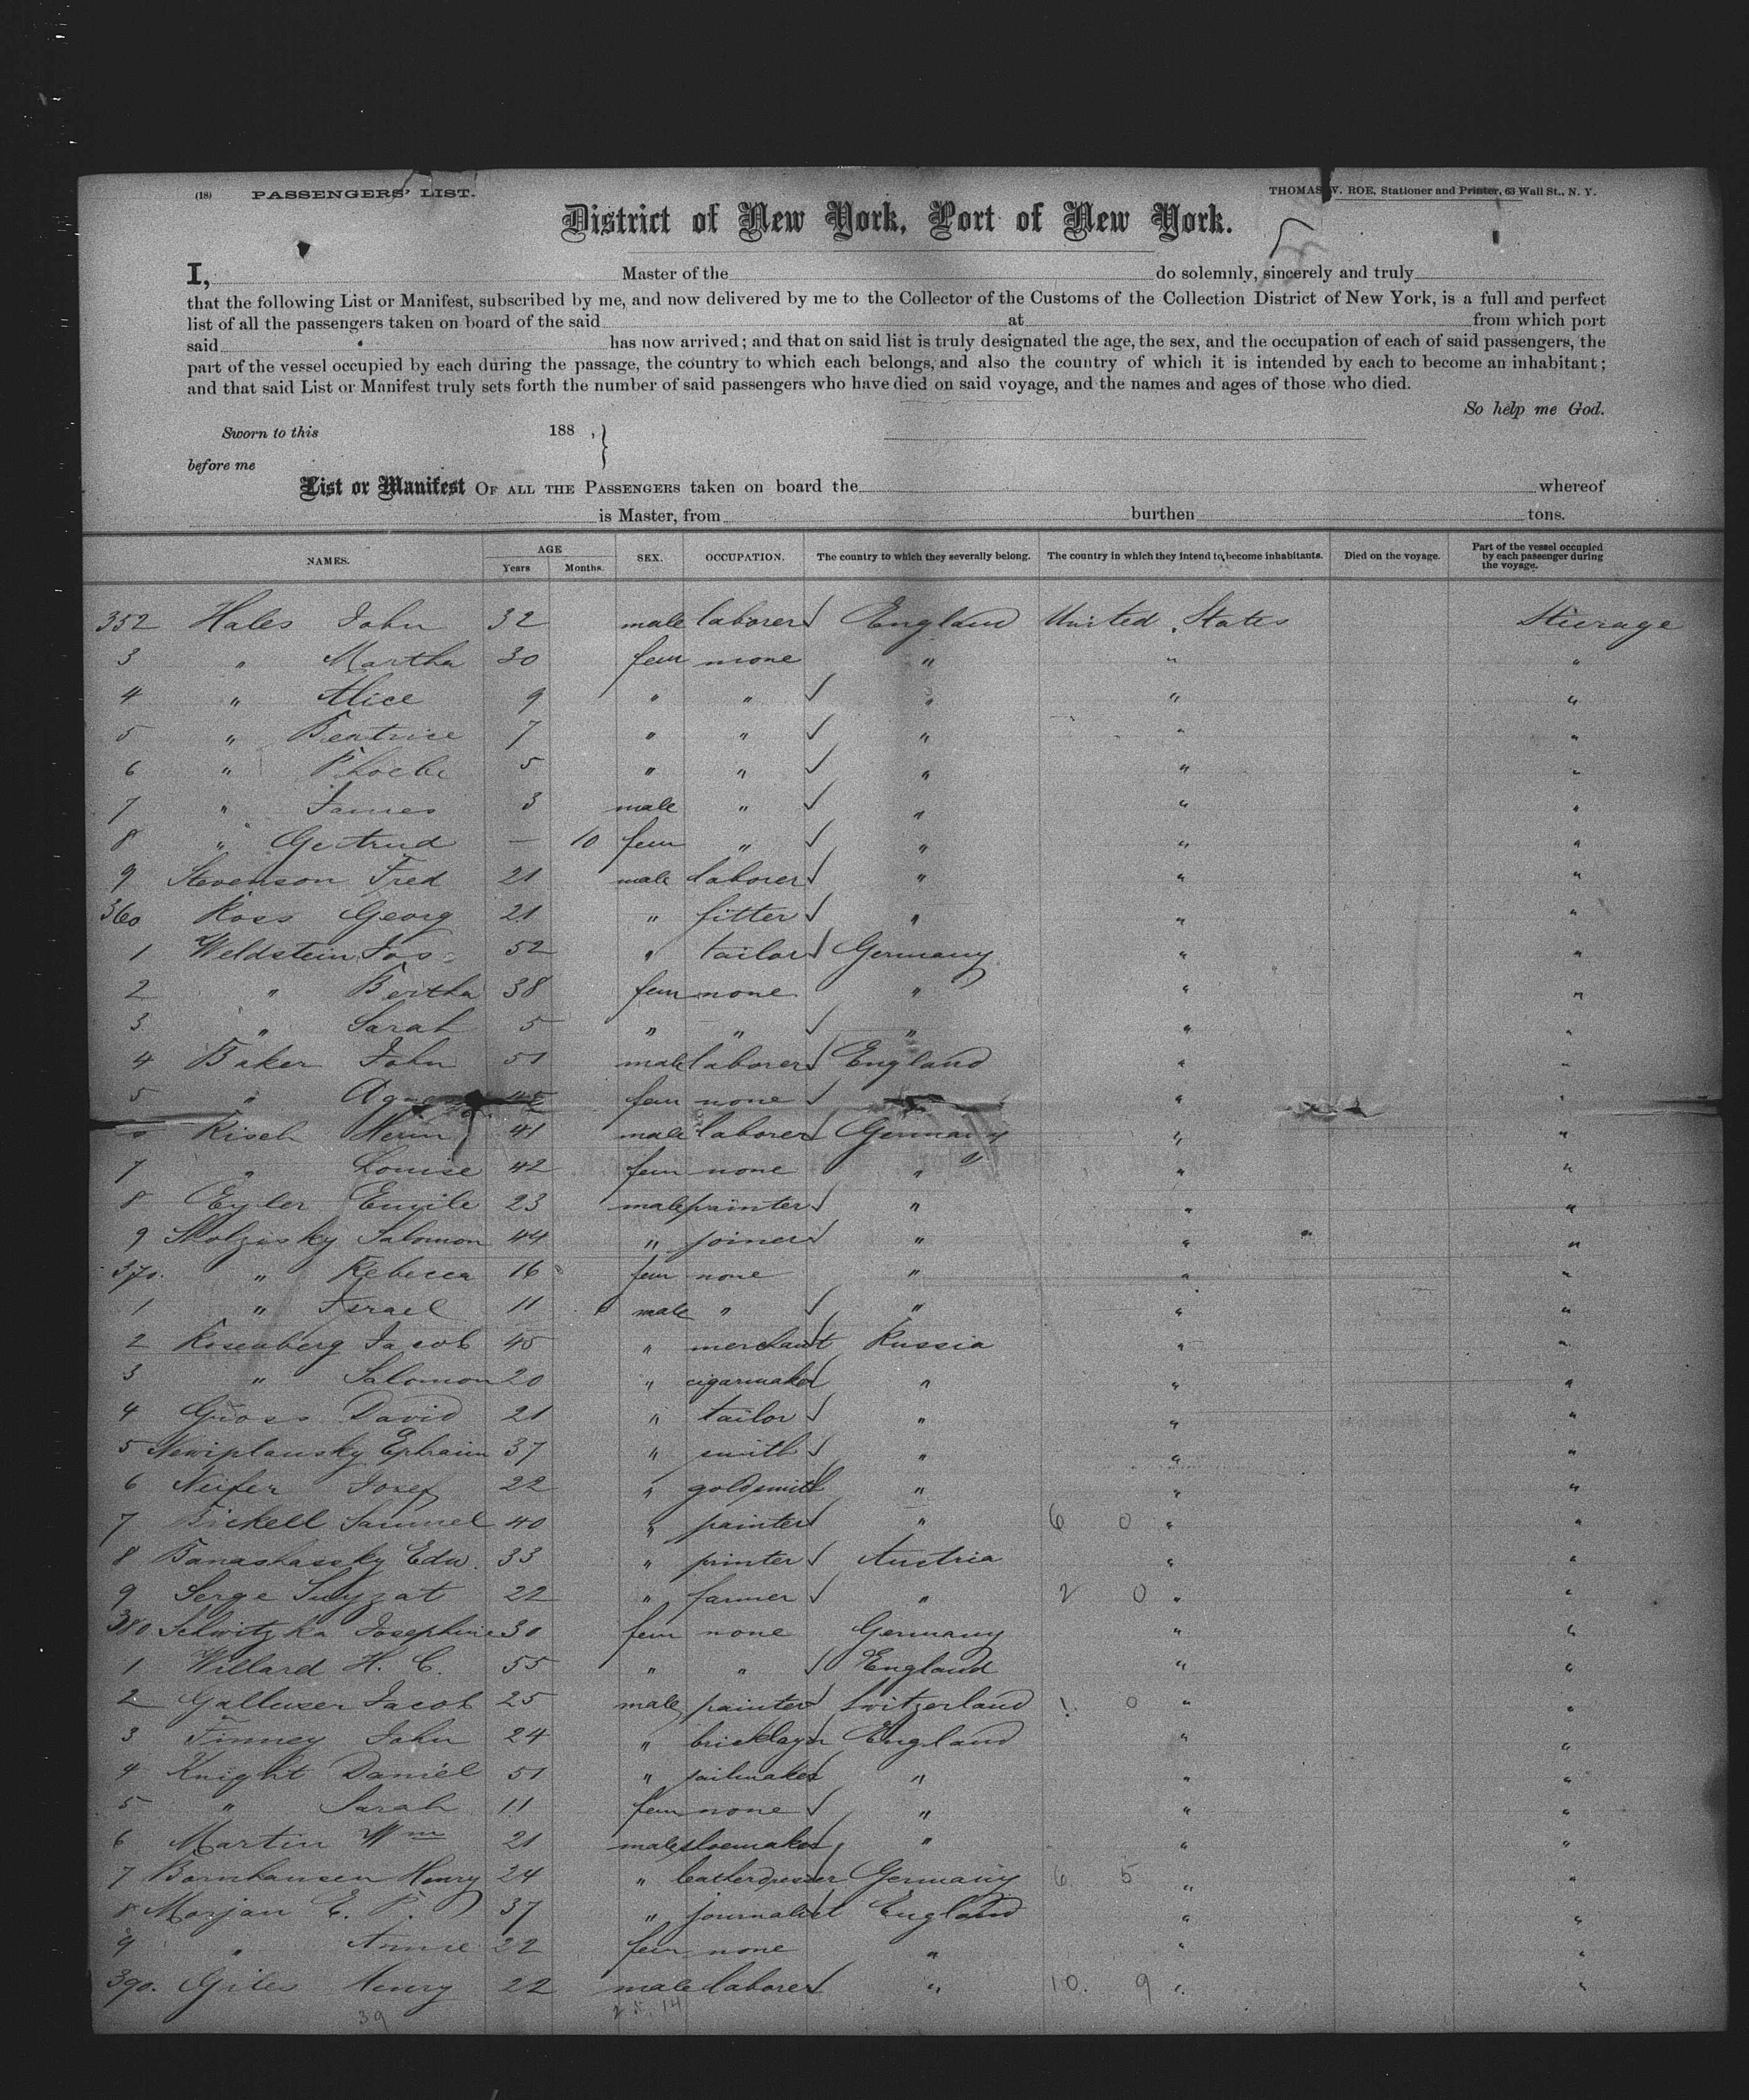 (18) PASSENGERS' LIST. THOMAS W. ROE, Stationer and Printer, 63 Wall St., N. Y.
District of New York, Port of New York.
I, Master of the do solemnly, sincerely and truly
that the following List or Manifest, subscribed by me, and now delivered by me to the Collector of the Customs of the Collection District of New York, is a full and perfect
list of all the passengers taken on board of the said at from which port
said has now arrived; and that on said list is truly designated the age, the sex, and the occupation of each of said passengers, the
part of the vessel occupied by each during the passage, the country to which each belongs, and also the country of which it is intended by each to become an inhabitant;
and that said List or Manifest truly sets forth the number of said passengers who have died on said voyage, and the names and ages of those who died.
So help me God.
Sworn to this 188 ,
before me
List or Manifest OF ALL THE PASSENGERS taken on board the whereof
is Master, from burthen tons.
NAMES. AGE Years Months. SEX. OCCUPATION. The country to which they severally belong. The country in which they intend to become inhabitants. Died on the voyage. Part of the vessel occupied by each passenger during the voyage.
352 Hales John 32 male laborer England United States Stierage
3 " Martha 30 fem none " " "
4 " Alice 9 " " " " "
5 " Beatrice 7 " " " " "
6 " Phoebe 5 " " " " "
7 " James 3 male " " " "
8 " Gertrud — 10 fem " " " "
9 Stevenson Fred 21 male laborer " " "
360 Ross Georg 21 " fitter " " "
1 Weldstein Jos 52 " tailor Germany " "
2 " Bertha 38 fem none " " "
3 " Sarah 5 " " " " "
4 Baker John 51 male laborer England " "
5 " fem none " "
Kisch Herm 41 male laborer Germany " "
7 " Louise 42 fem none " " "
8 Eyler Emile 23 male painter " " "
9 Salomon 44 " joiner " " "
370. " Rebecca 16 fem none " " "
1 " Israel 11 male " " " "
2 Rosenberg Jacob 45 " merchant Russia " "
3 " Salomon 20 " cigarmaker " " "
4 Gross David 21 " tailor " " "
5 Newiplansky Ephraim 37 " smith " " "
6 Neifer Josef 22 " goldsmith " " "
7 Bickell Samuel 40 " painter " 6 0 " "
8 Edw. 33 " printer Austria " "
9 Serge 22 " farmer " 2 0 " "
380 Selwitzka Josephine 30 fem none Germany " "
1 Willard H. C. 55 " " England " "
2 Galluser Jacob 25 male painter Switzerland 1 0 " "
3 Finney John 24 " bricklayer England " "
4 Knight Daniel 51 " sailmaker " " "
5 " Sarah 11 fem none " " "
6 Martin Wm 21 male shoemaker " " "
7 Bornhausen Henry 24 " leatherdresser Germany 6 5 " "
8 Morjan E. P. 37 " journalist England " "
9 " Annie 22 fem none " " "
390. Giles Henry 22 male laborer " 10. 9 " "
39 25.14